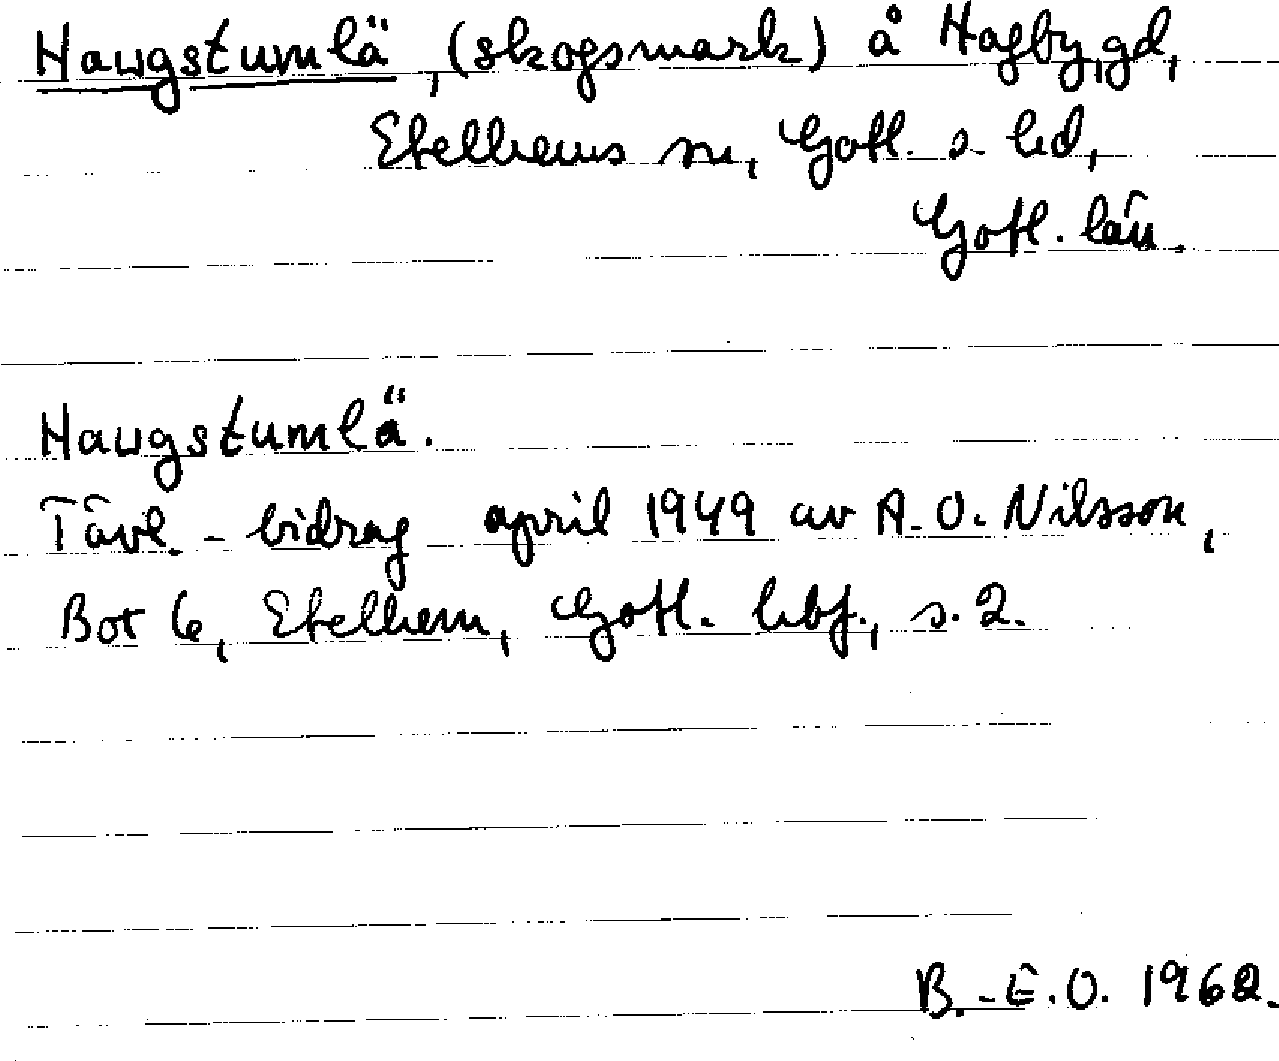 Haugstumlä, (skogsmark) å Hagby, gd,
Etelhems sn, Gotl. s. hd,
Gotl. län.
Haugstumlä.
Tävl. - bidrag april 1949 av A. O. Nilsson,
Box 6, Etelhem, Gotl. hbf., s. 2.
B.-E.O. 1962.